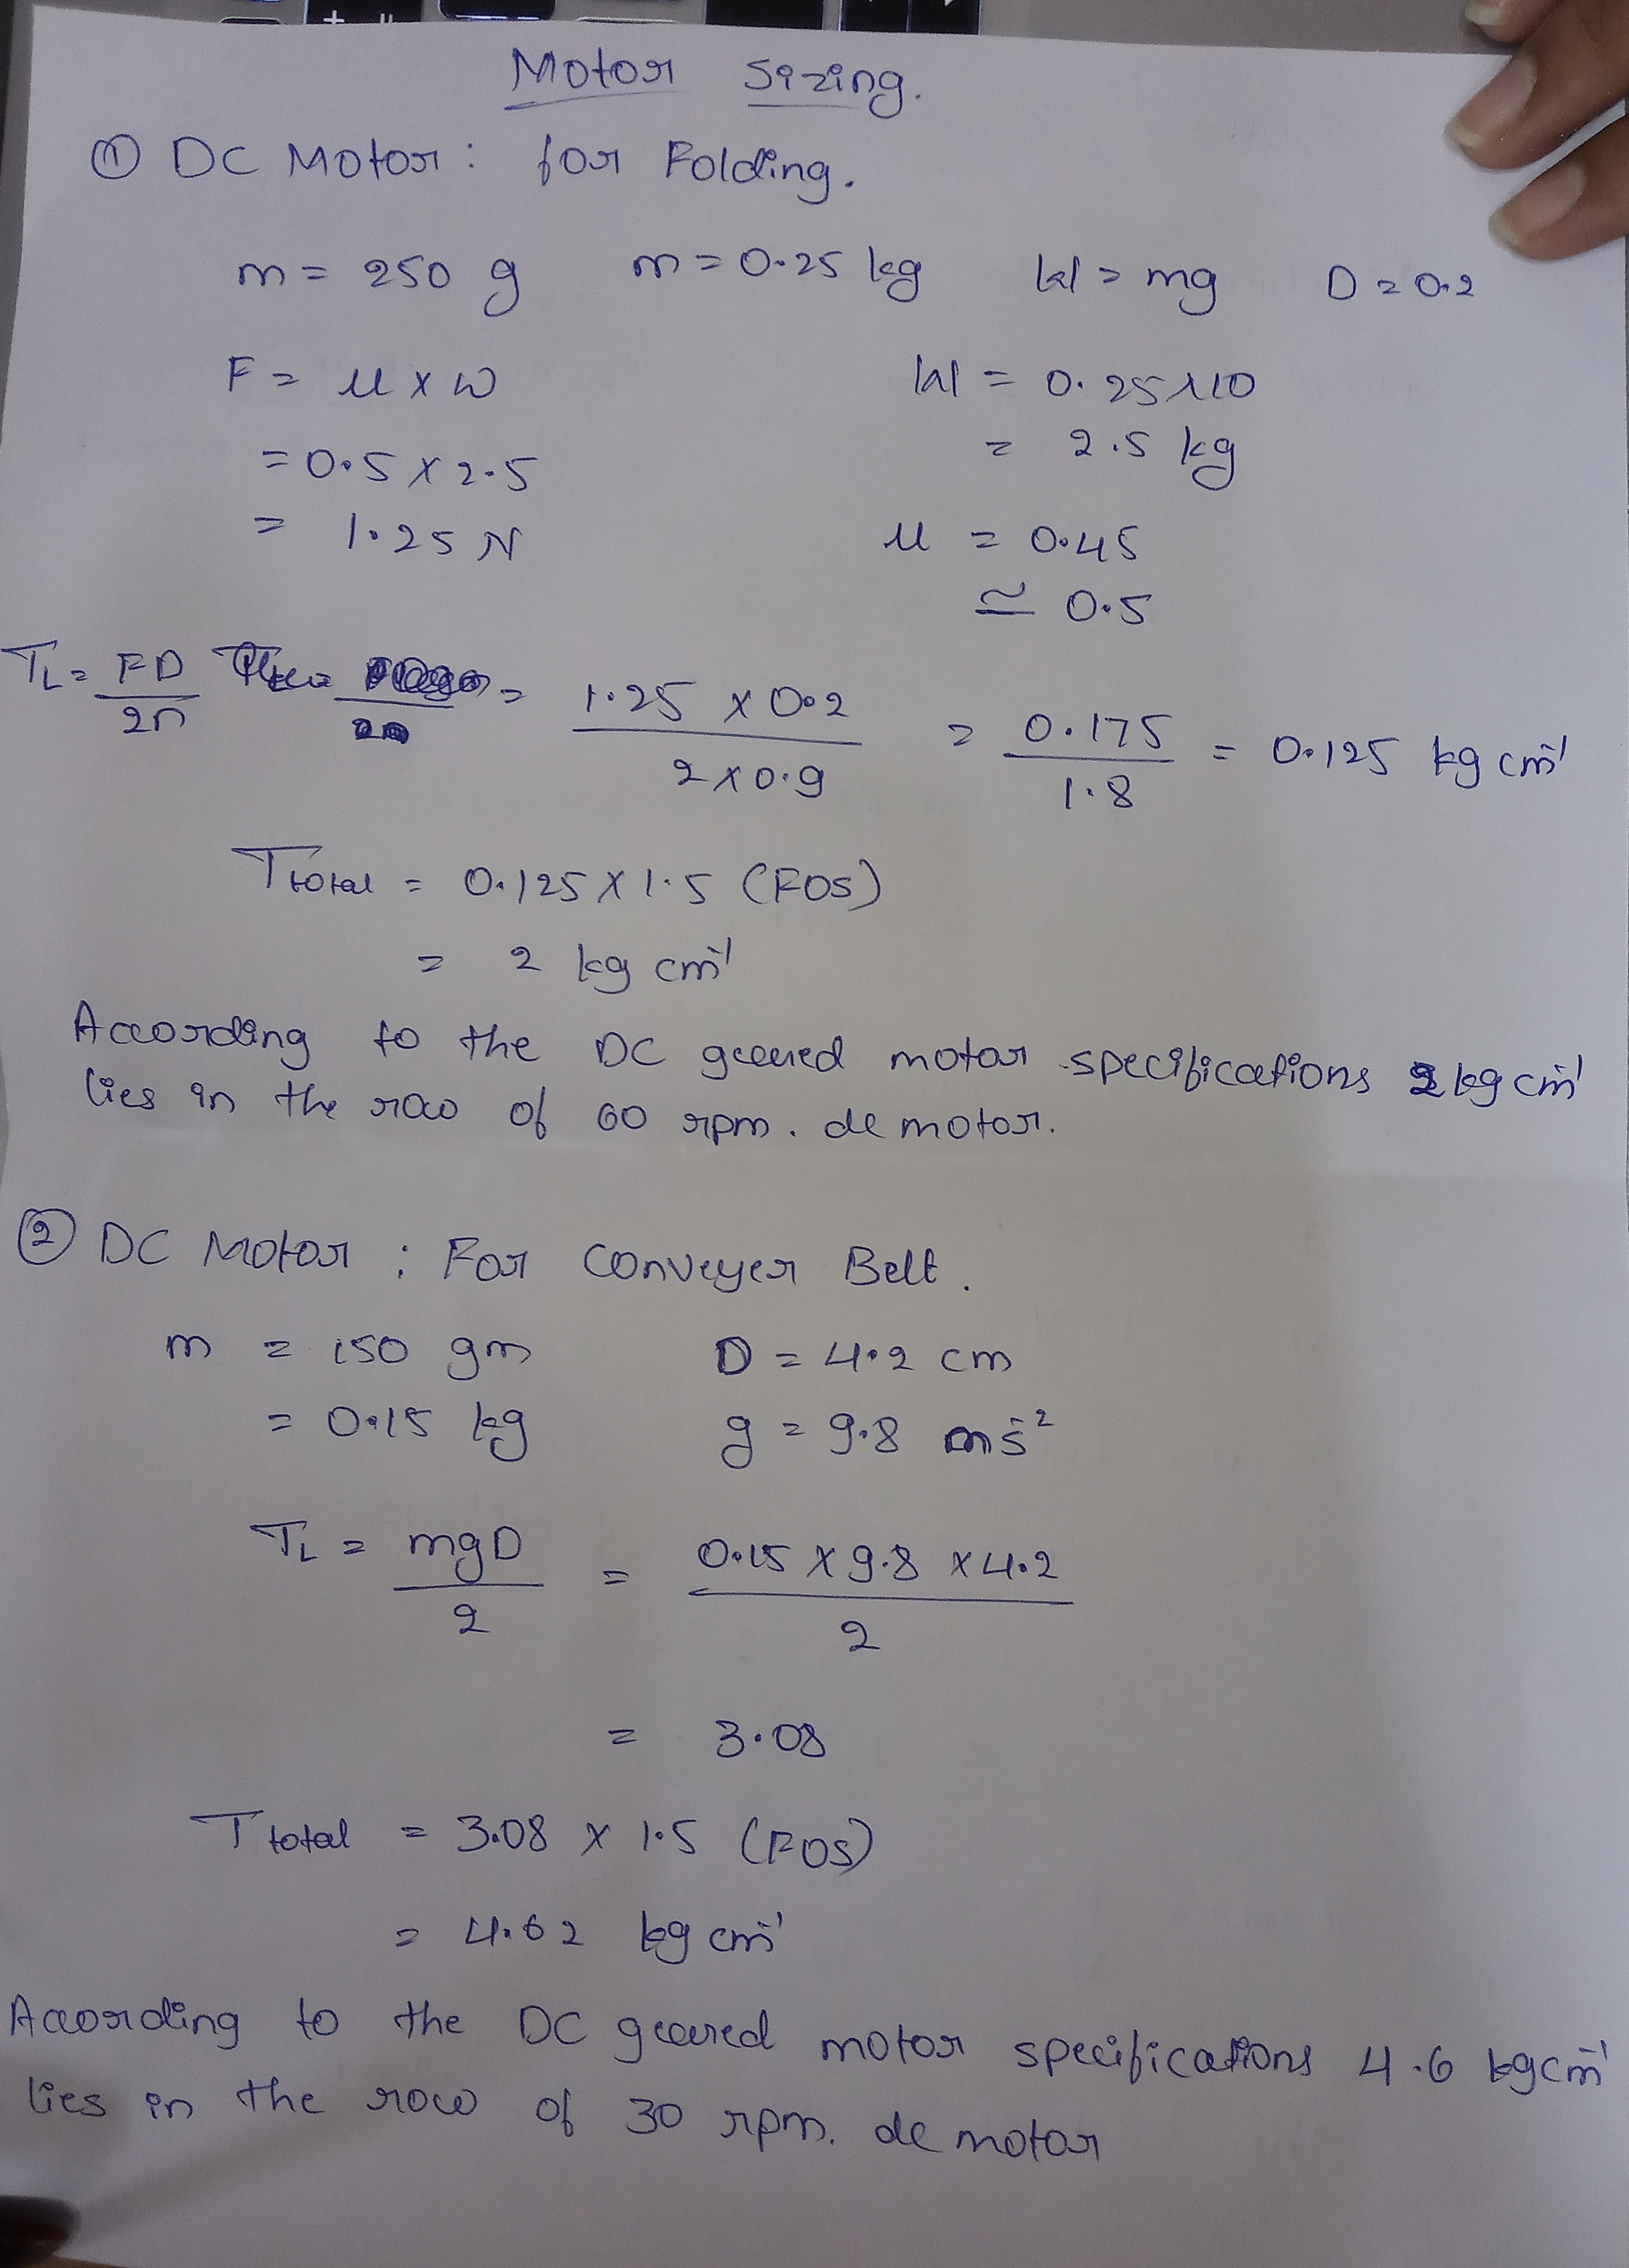 Motor Sizing.
① DC Motor: for Folding.
m = 250 g m = 0.25 kg W = mg D = 0.2
F = μ x W W = 0.25x10
= 0.5 x 2.5 = 2.5 kg
= 1.25 N μ = 0.45
≃ 0.5
T_L = FD/2η = (1.25 x 0.2)/(2x0.9) = 0.175/1.8 = 0.125 kg cm⁻¹
T total = 0.125 x 1.5 (FOS)
= 2 kg cm⁻¹
According to the DC geared motor specifications 2 kg cm⁻¹
lies in the row of 60 rpm. dc motor.
② DC Motor : For Conveyer Belt.
m = 150 gm D = 4.2 cm
= 0.15 kg g = 9.8 ms⁻²
T_L = mgD/2 = (0.15 x 9.8 x 4.2)/2
= 3.08
T total = 3.08 x 1.5 (FOS)
= 4.62 kg cm⁻¹
According to the DC geared motor specifications 4.6 kgcm⁻¹
lies in the row of 30 rpm. dc motor